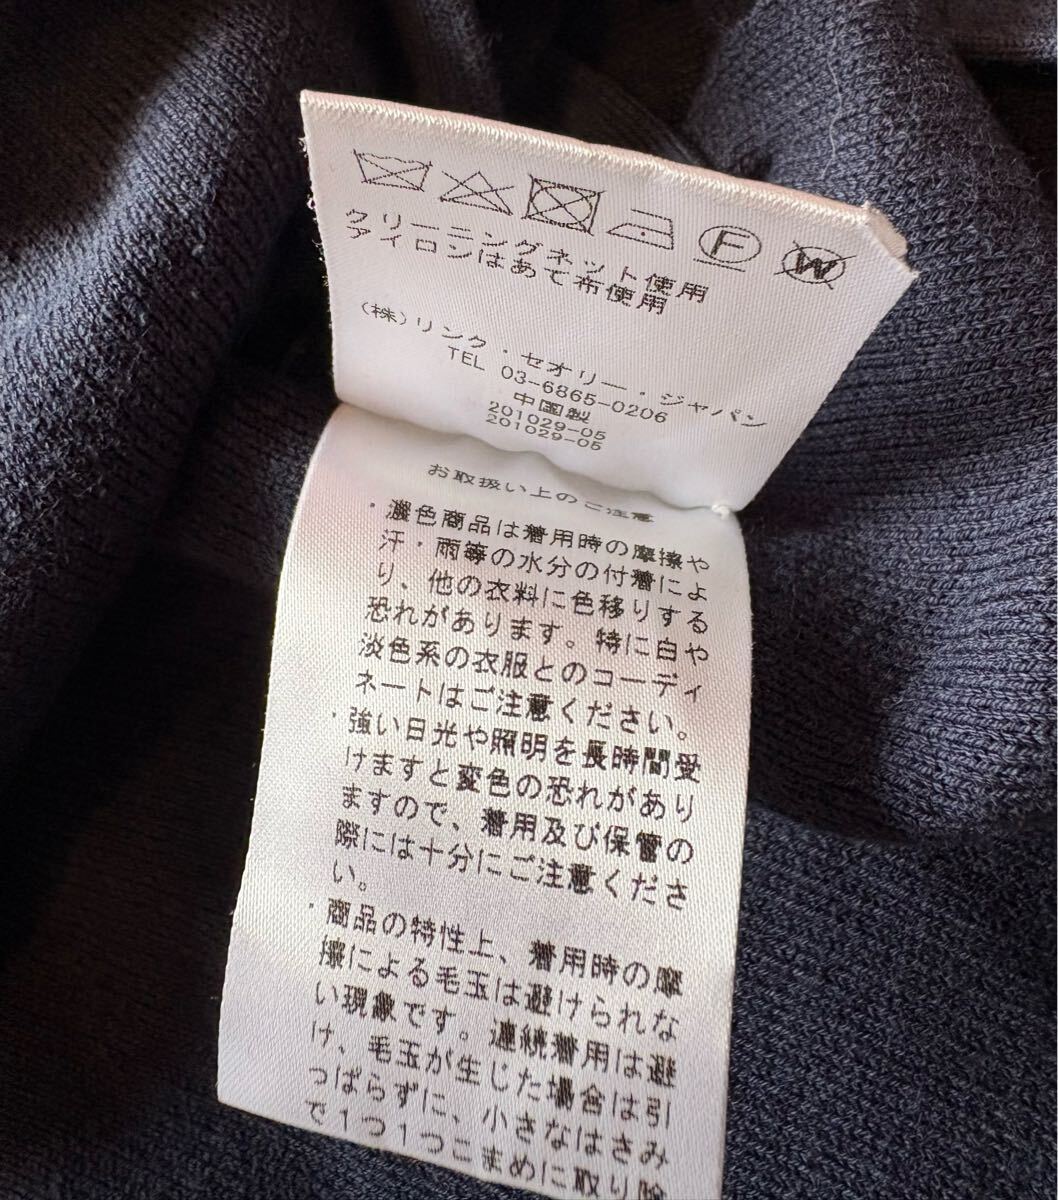 F W
クリーニングネット使用
アイロンはあて布使用
(株)リンク・セオリー・ジャパン
TEL 03-6865-0206
中国製
201029-05
201029-05
お取扱い上のご注意
・濃色商品は着用時の摩擦や
汗・雨等の水分の付着によ
り、他の衣料に色移りする
恐れがあります。特に白や
淡色系の衣服とのコーディ
ネートはご注意ください。
・強い日光や照明を長時間受
けますと変色の恐れがあり
ますので、着用及び保管の
際には十分にご注意くださ
い。
・商品の特性上、着用時の摩
擦による毛玉は避けられな
い現象です。連続着用は避
け、毛玉が生じた場合は引
っぱらずに、小さなはさみ
で1つ1つこまめに取り除